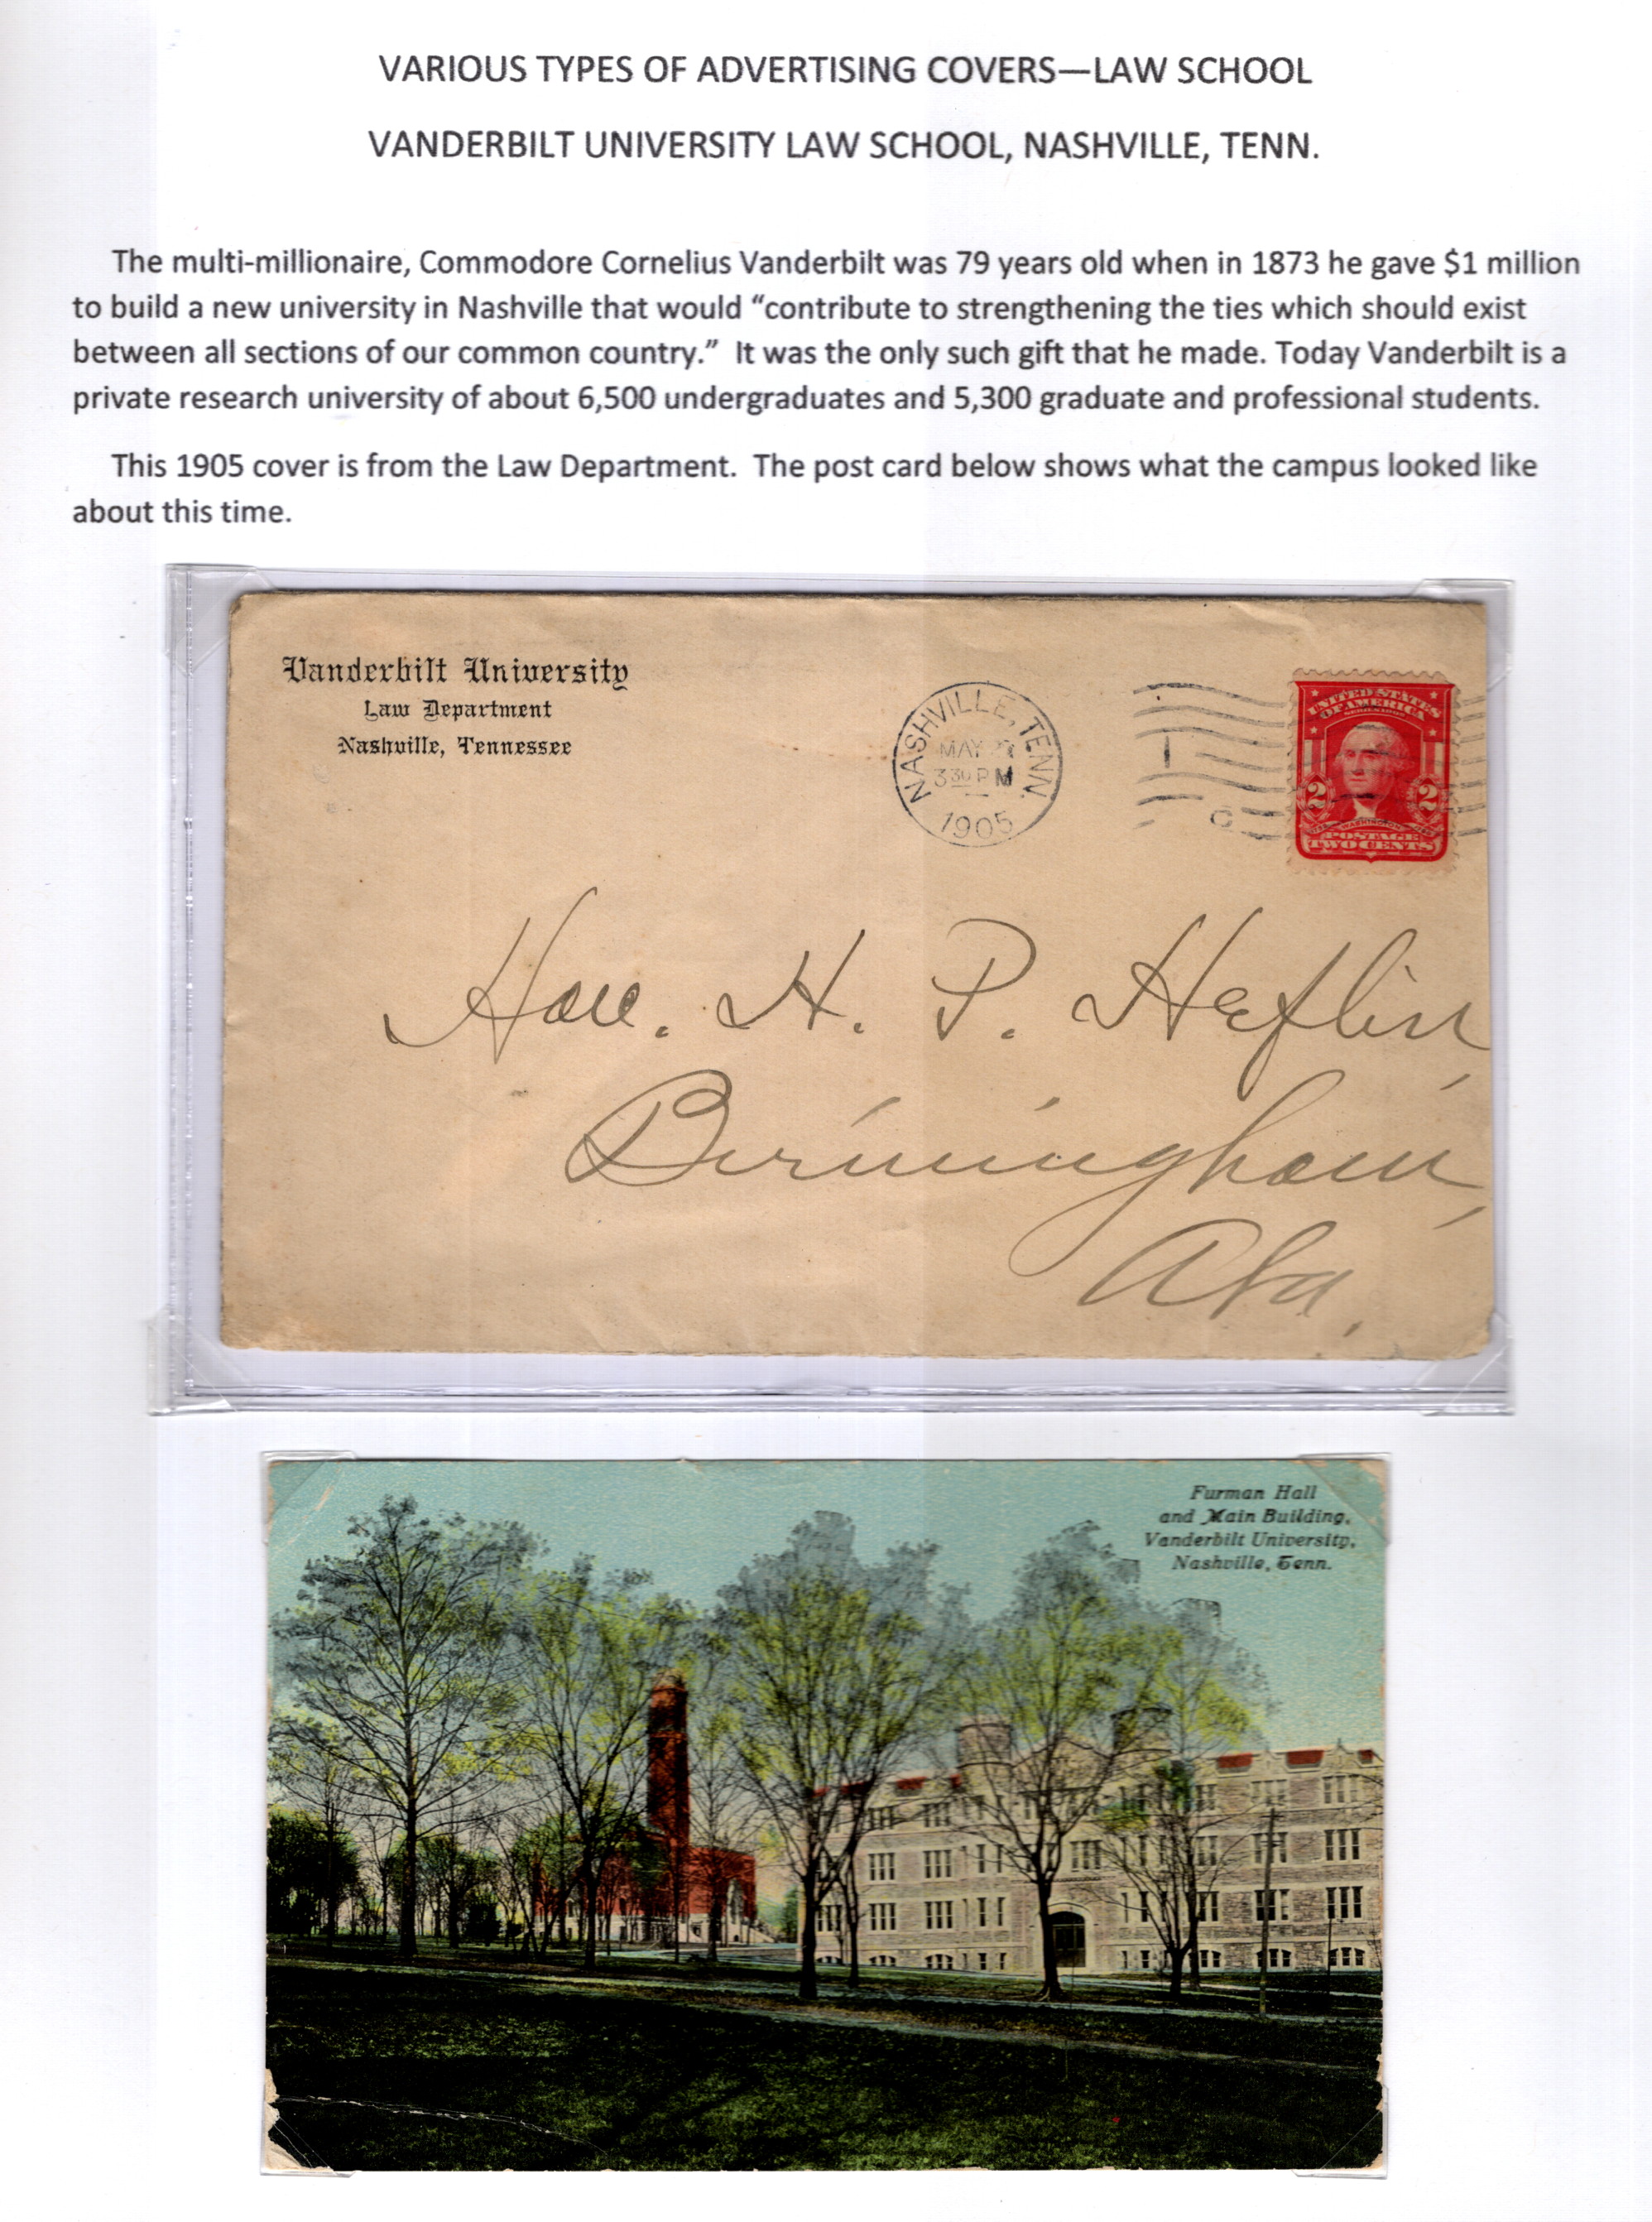 VARIOUS TYPES OF ADVERTISING COVERS—LAW SCHOOL
VANDERBILT UNIVERSITY LAW SCHOOL, NASHVILLE, TENN.
The multi-millionaire, Commodore Cornelius Vanderbilt was 79 years old when in 1873 he gave $1 million
to build a new university in Nashville that would “contribute to strengthening the ties which should exist
between all sections of our common country.”  It was the only such gift that he made. Today Vanderbilt is a
private research university of about 6,500 undergraduates and 5,300 graduate and professional students.
This 1905 cover is from the Law Department.  The post card below shows what the campus looked like
about this time.
Vanderbilt University
Law Department
Nashville, Tennessee
NASHVILLE, TENN.
MAY
3 30 PM
1905
UNITED STATES
OF AMERICA
2 2
WASHINGTON
POSTAGE
TWO CENTS
Hon. H. P. Heflin,
Birmingham,
Ala.
Furman Hall
and Main Building,
Vanderbilt University,
Nashville, Tenn.